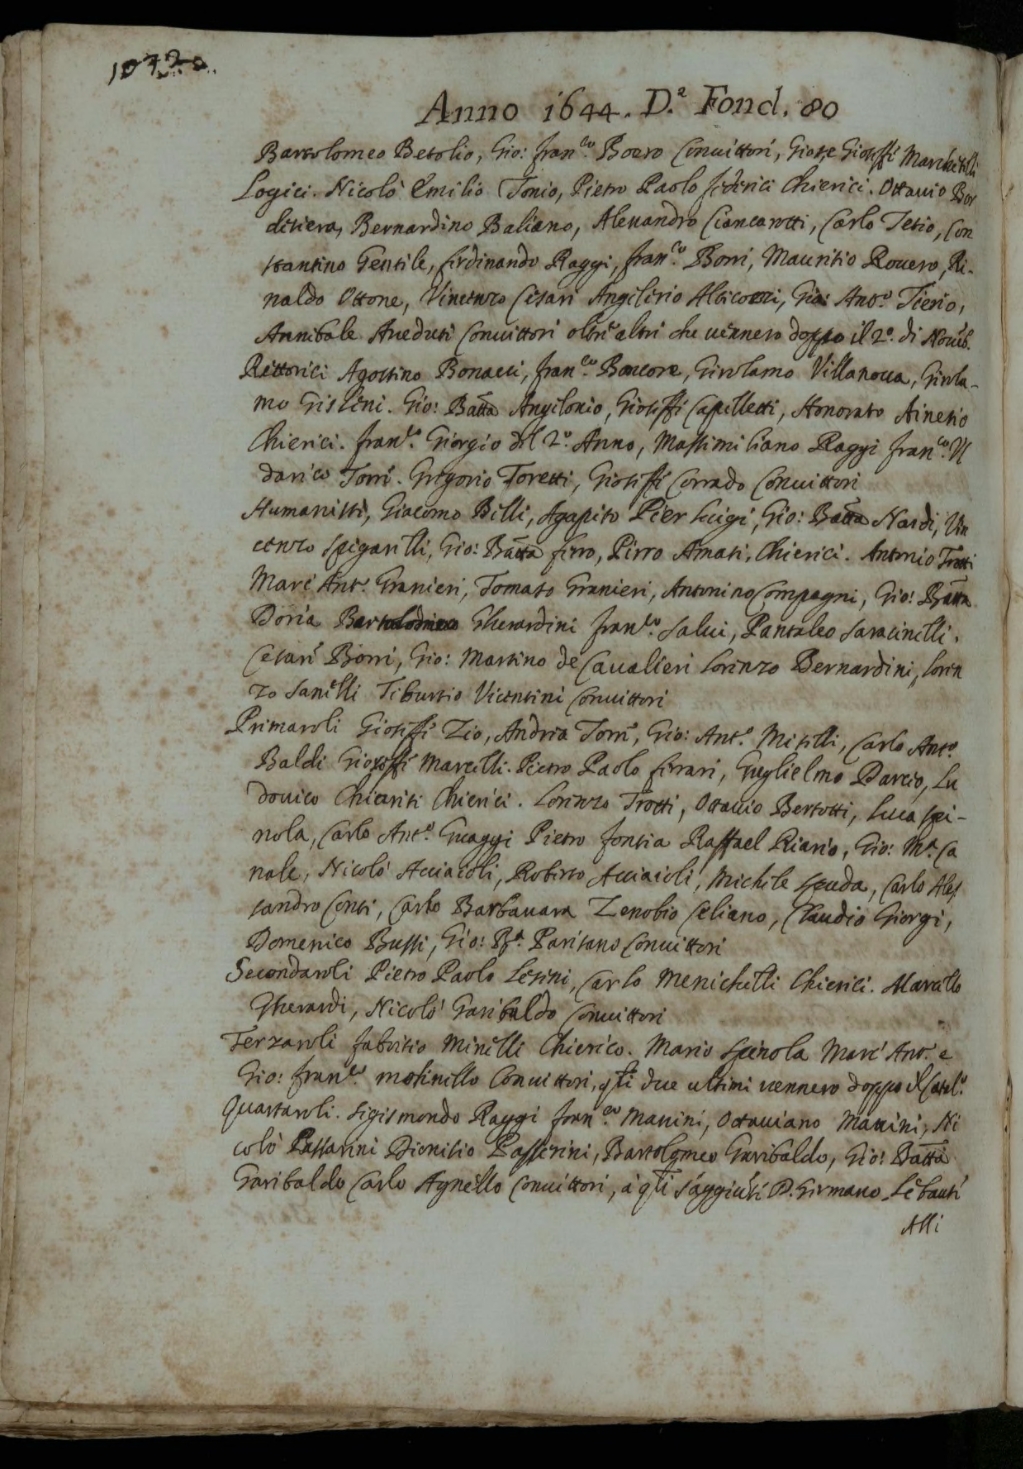 1072
Anno 1644. D.ª Fond. 80
Bartolomeo Betolio, Gio: Fran.co Boero Convittori, Gioseffi
Logici. Nicolò Emilio Tonio, Pietro Paolo Federici Chierici. Ottavio Bor
Bernardino Baliano, Alessandro Ciancarotti, Carlo Tesio, Con
stantino Gentile, Ferdinando Raggi, Fran.co Borri, Mauritio Rouero, Ri-
naldo Ottone, Vincenzo Cesari Angelerio Alticozzi, Gio: Ant.º
Annibale Aveduti Convittori oltre altri che vennero doppo il 2.º di Novēb.
Rettorici Agostino Bonacci, Fran.co Boncore, Girolamo Villanova, Girola-
mo Gislini. Gio: Batta Angelonio, Gioseffi Capelletti, Honorato Ainesio
Chierici. Fran.co Giorgio del 2.º Anno, Massimiliano Raggi Fran.co Ul
darico Torri. Gregorio Toretti, Gioseffi Corrado Convittori
Humanisti, Giacomo Billi, Agapito Pier Luigi, Gio: Batta Nardi, Vin
cenzo Spigarelli, Gio: Batta Ferro, Pirro Amati, Chierici. Antonio Trotti
Marc' Ant.º Granieri, Tomaso Granieri, Antonino Compagni, Gio: Batta
Doria Gherardini Fran.co Salvi, Pantaleo Saracinelli.
Cesare Borri, Gio: Martino de Cavalieri Lorenzo Bernardini, Loren
zo Sanelli Tiburtio Vicentini Convittori
Primaroli Gioseffi Zio, Andrea Torri, Gio: Ant.º Mitilli, Carlo Ant.º
Baldi Gioseffi Marcelli. Pietro Paolo Ferrari, Guglielmo Darcio, Lu
dovico Chiariti Chierici. Lorenzo Trotti, Ottavio Bertotti, Luca Spi-
nola, Carlo Ant.º Guaggi Pietro Fontia Raffael Riario, Gio: M.ª Ca
nale, Nicolò Acciaioli, Roberto Acciaioli, Michele Spada, Carlo Ales
sandro Conti, Carlo Barbavara Zenobio Celiano, Claudio Giorgi,
Domenico Bussi, Gio: B.ª Parisano Convittori
Secondaroli Pietro Paolo Lesini, Carlo Menichelli Chierici. Marcello
Gherardi, Nicolò Garibaldo Convittori
Terzaroli Fabritio Minelli Chierico. Mario Spinola Marc' Ant.º e
Gio: Fran.co Molinello Convittori, q̄sti due ultimi vennero doppo il
Quartaroli. Sigismondo Raggi Fran.co Massini, Ottaviano Massini, Ni
colò Passarini Dionisio Passerini, Bartolomeo Garibaldo, Gio: Batta
Garibaldo Carlo Agnello Convittori, à q̄sti s'aggiunsē D. Germano
Alli